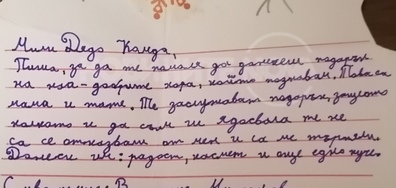 Мили Дедо Коледа,
Пиша, за да те помоля да донесеш подарък
на най-добрите хора, които познавам. Това са
мама и тате. Те заслужават подарък, защото
колкото и да съм ги ядосвала те не
са се отказвали от мен и са ме търпели.
Донеси им: радост, късмет и още едно куче.
С